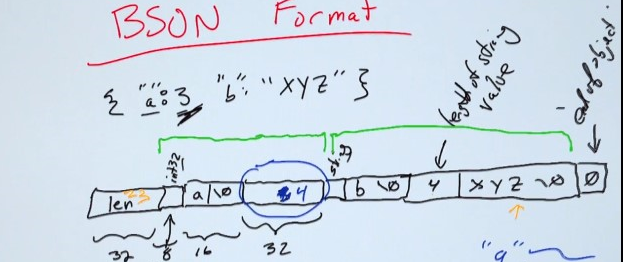 BSON Format
{ "a": 3, "b": "XYZ" }
length of string value
end of object
int32
len 23 a \0 4 b \0 4 X Y Z \0 0
32 8 16 32
"a"